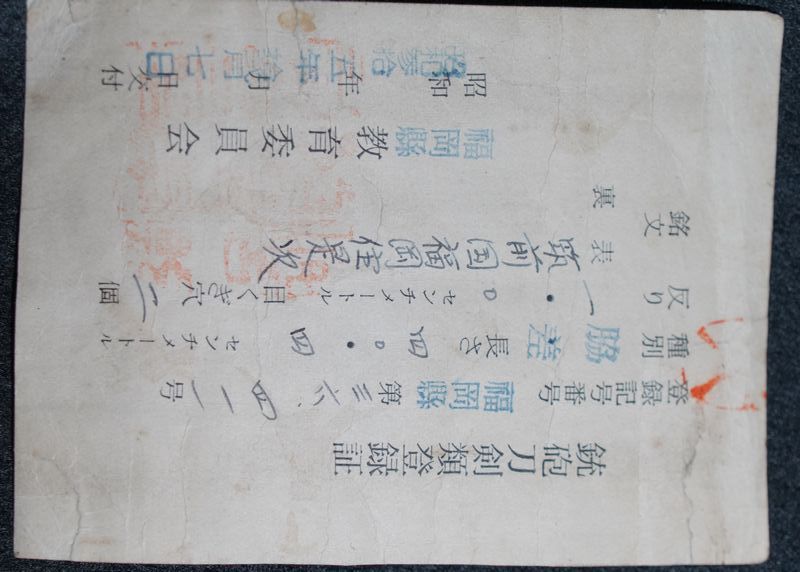 銃砲刀剣類登録証
登録記号番号 福岡縣 第三六、四一一号
種別 脇差 長さ 四〇・四 センチメートル
反り 一・〇 センチメートル 目くぎ穴 二個
銘文 表 筑前国福岡住是次
裏
福岡縣教育委員会
昭和参拾五年拾月七日交付